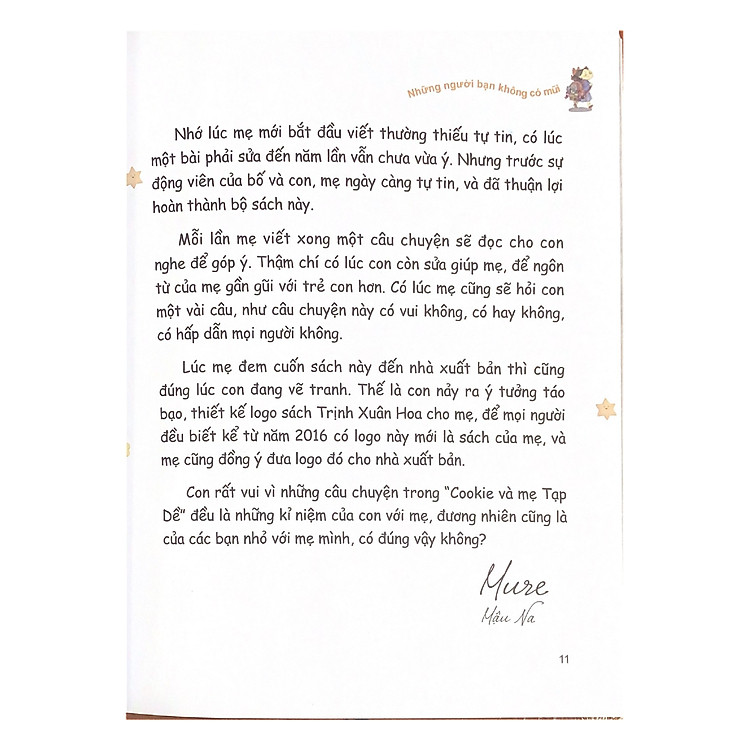 Những người bạn không có mũi
Nhớ lúc mẹ mới bắt đầu viết thường thiếu tự tin, có lúc
một bài phải sửa đến năm lần vẫn chưa vừa ý. Nhưng trước sự
động viên của bố và con, mẹ ngày càng tự tin, và đã thuận lợi
hoàn thành bộ sách này.
Mỗi lần mẹ viết xong một câu chuyện sẽ đọc cho con
nghe để góp ý. Thậm chí có lúc con còn sửa giúp mẹ, để ngôn
từ của mẹ gần gũi với trẻ con hơn. Có lúc mẹ cũng sẽ hỏi con
một vài câu, như câu chuyện này có vui không, có hay không,
có hấp dẫn mọi người không.
Lúc mẹ đem cuốn sách này đến nhà xuất bản thì cũng
đúng lúc con đang vẽ tranh. Thế là con nảy ra ý tưởng táo
bạo, thiết kế logo sách Trịnh Xuân Hoa cho mẹ, để mọi người
đều biết kể từ năm 2016 có logo này mới là sách của mẹ, và
mẹ cũng đồng ý đưa logo đó cho nhà xuất bản.
Con rất vui vì những câu chuyện trong “Cookie và mẹ Tạp
Dề” đều là những kỉ niệm của con với mẹ, đương nhiên cũng là
của các bạn nhỏ với mẹ mình, có đúng vậy không?
Mure
Mậu Na
11